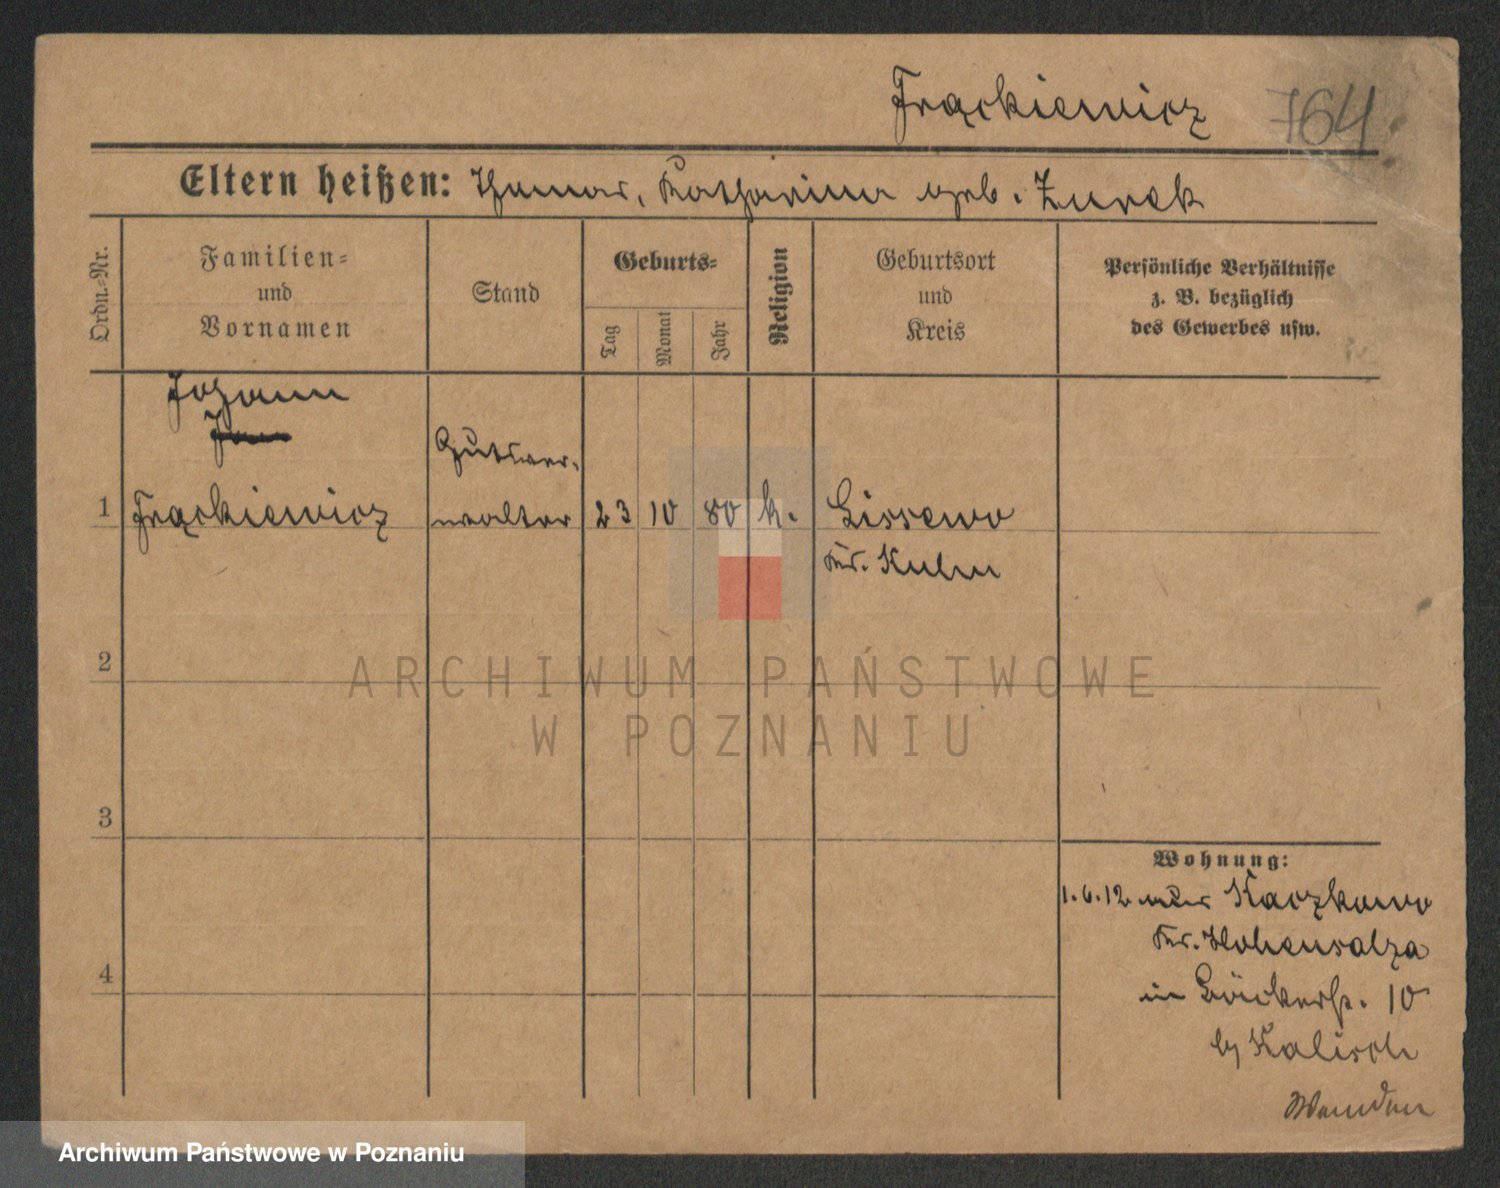 Frąckiewicz 764
Eltern heißen: Thomas, Katharina geb. Zurek
Ordn.-Nr.
Familien-
und
Vornamen
Stand
Geburts-
Tag
Monat
Jahr
Religion
Geburtsort
und
Kreis
Persönliche Verhältnisse
z. B. bezüglich
des Gewerbes usw.
Johann
1 Frąckiewicz
Gutsver-
walter
23 10 80 k.
Lissewo
Kr. Kulm
2
3
4
Wohnung:
1.6.12 aus Kaczkowo
Kr. Hohensalza
in Bäckerstr. 10
by Kalisch
ARCHIWUM PAŃSTWOWE
W POZNANIU
Archiwum Państwowe w Poznaniu